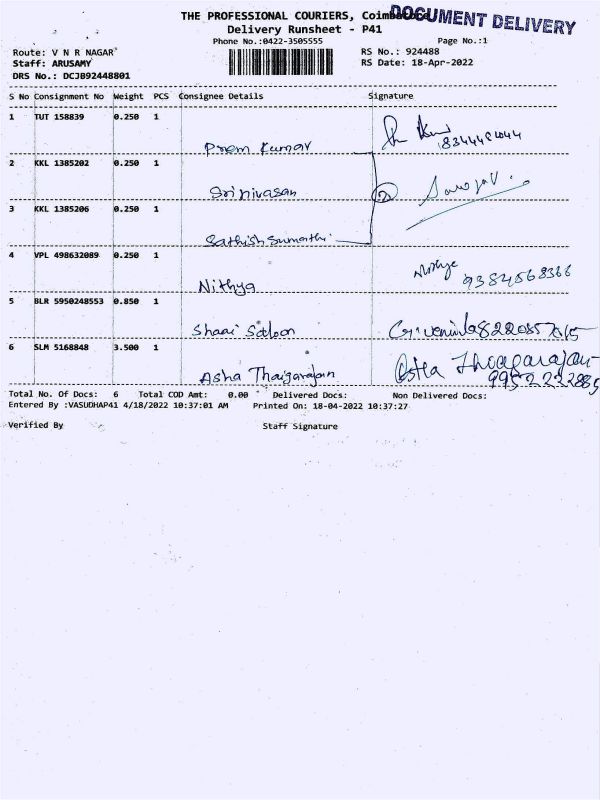 THE PROFESSIONAL COURIERS, Coimbatore
DOCUMENT DELIVERY
Delivery Runsheet - P41
Phone No.:0422-3505555
Page No.:1
Route: V N R NAGAR
RS No.: 924488
Staff: ARUSAMY
RS Date: 18-Apr-2022
DRS No.: DCJB92448801
S No Consignment No Weight PCS Consignee Details Signature
1 TUT 158839 0.250 1
Prem Kumar
2 KKL 1385202 0.250 1
Srinivasan
3 KKL 1385206 0.250 1
Sathish Sumathi
4 VPL 498632089 0.250 1
Nithya 9384568366
5 BLR 5950248553 0.850 1
6 SLM 5168848 3.500 1
Asha Thaigarajan
9952232885
Total No. Of Docs: 6 Total COD Amt: 0.00 Delivered Docs: Non Delivered Docs:
Entered By :VASUDHAP41 4/18/2022 10:37:01 AM Printed On: 18-04-2022 10:37:27
Verified By Staff Signature